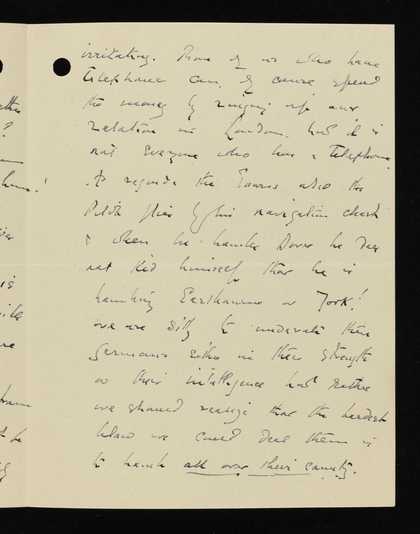 irritating. Those of us who have
telephones can, of course spend
the money by ringing up our
relations in London. but it is
not everyone who has a telephone.
As regards the Enemy also the
Pilot flies by his navigation chart
& when he bombs Dover he does
not kid himself that he is
bombing Eastbourne or York!
we are silly to underrate these
Germans either in their strength
or their intelligence but rather
we should realize that the hardest
blow we could deal them is
to bomb all over their country.